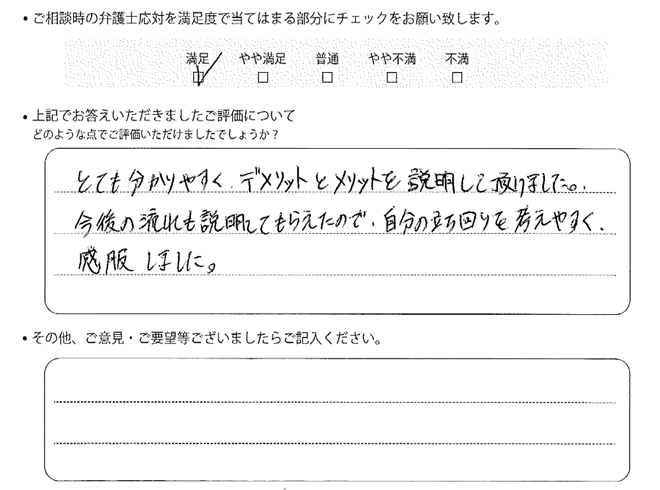 ・ご相談時の弁護士応対を満足度で当てはまる部分にチェックをお願い致します。
満足 やや満足 普通 やや不満 不満
☑ □ □ □ □
・上記でお答えいただきましたご評価について
どのような点でご評価いただけましたでしょうか？
とても分かりやすく、デメリットとメリットを説明して頂けました。
今後の流れも説明してもらえたので、自分の立ち回りを考えやすく、
感服しました。
・その他、ご意見・ご要望等ございましたらご記入ください。